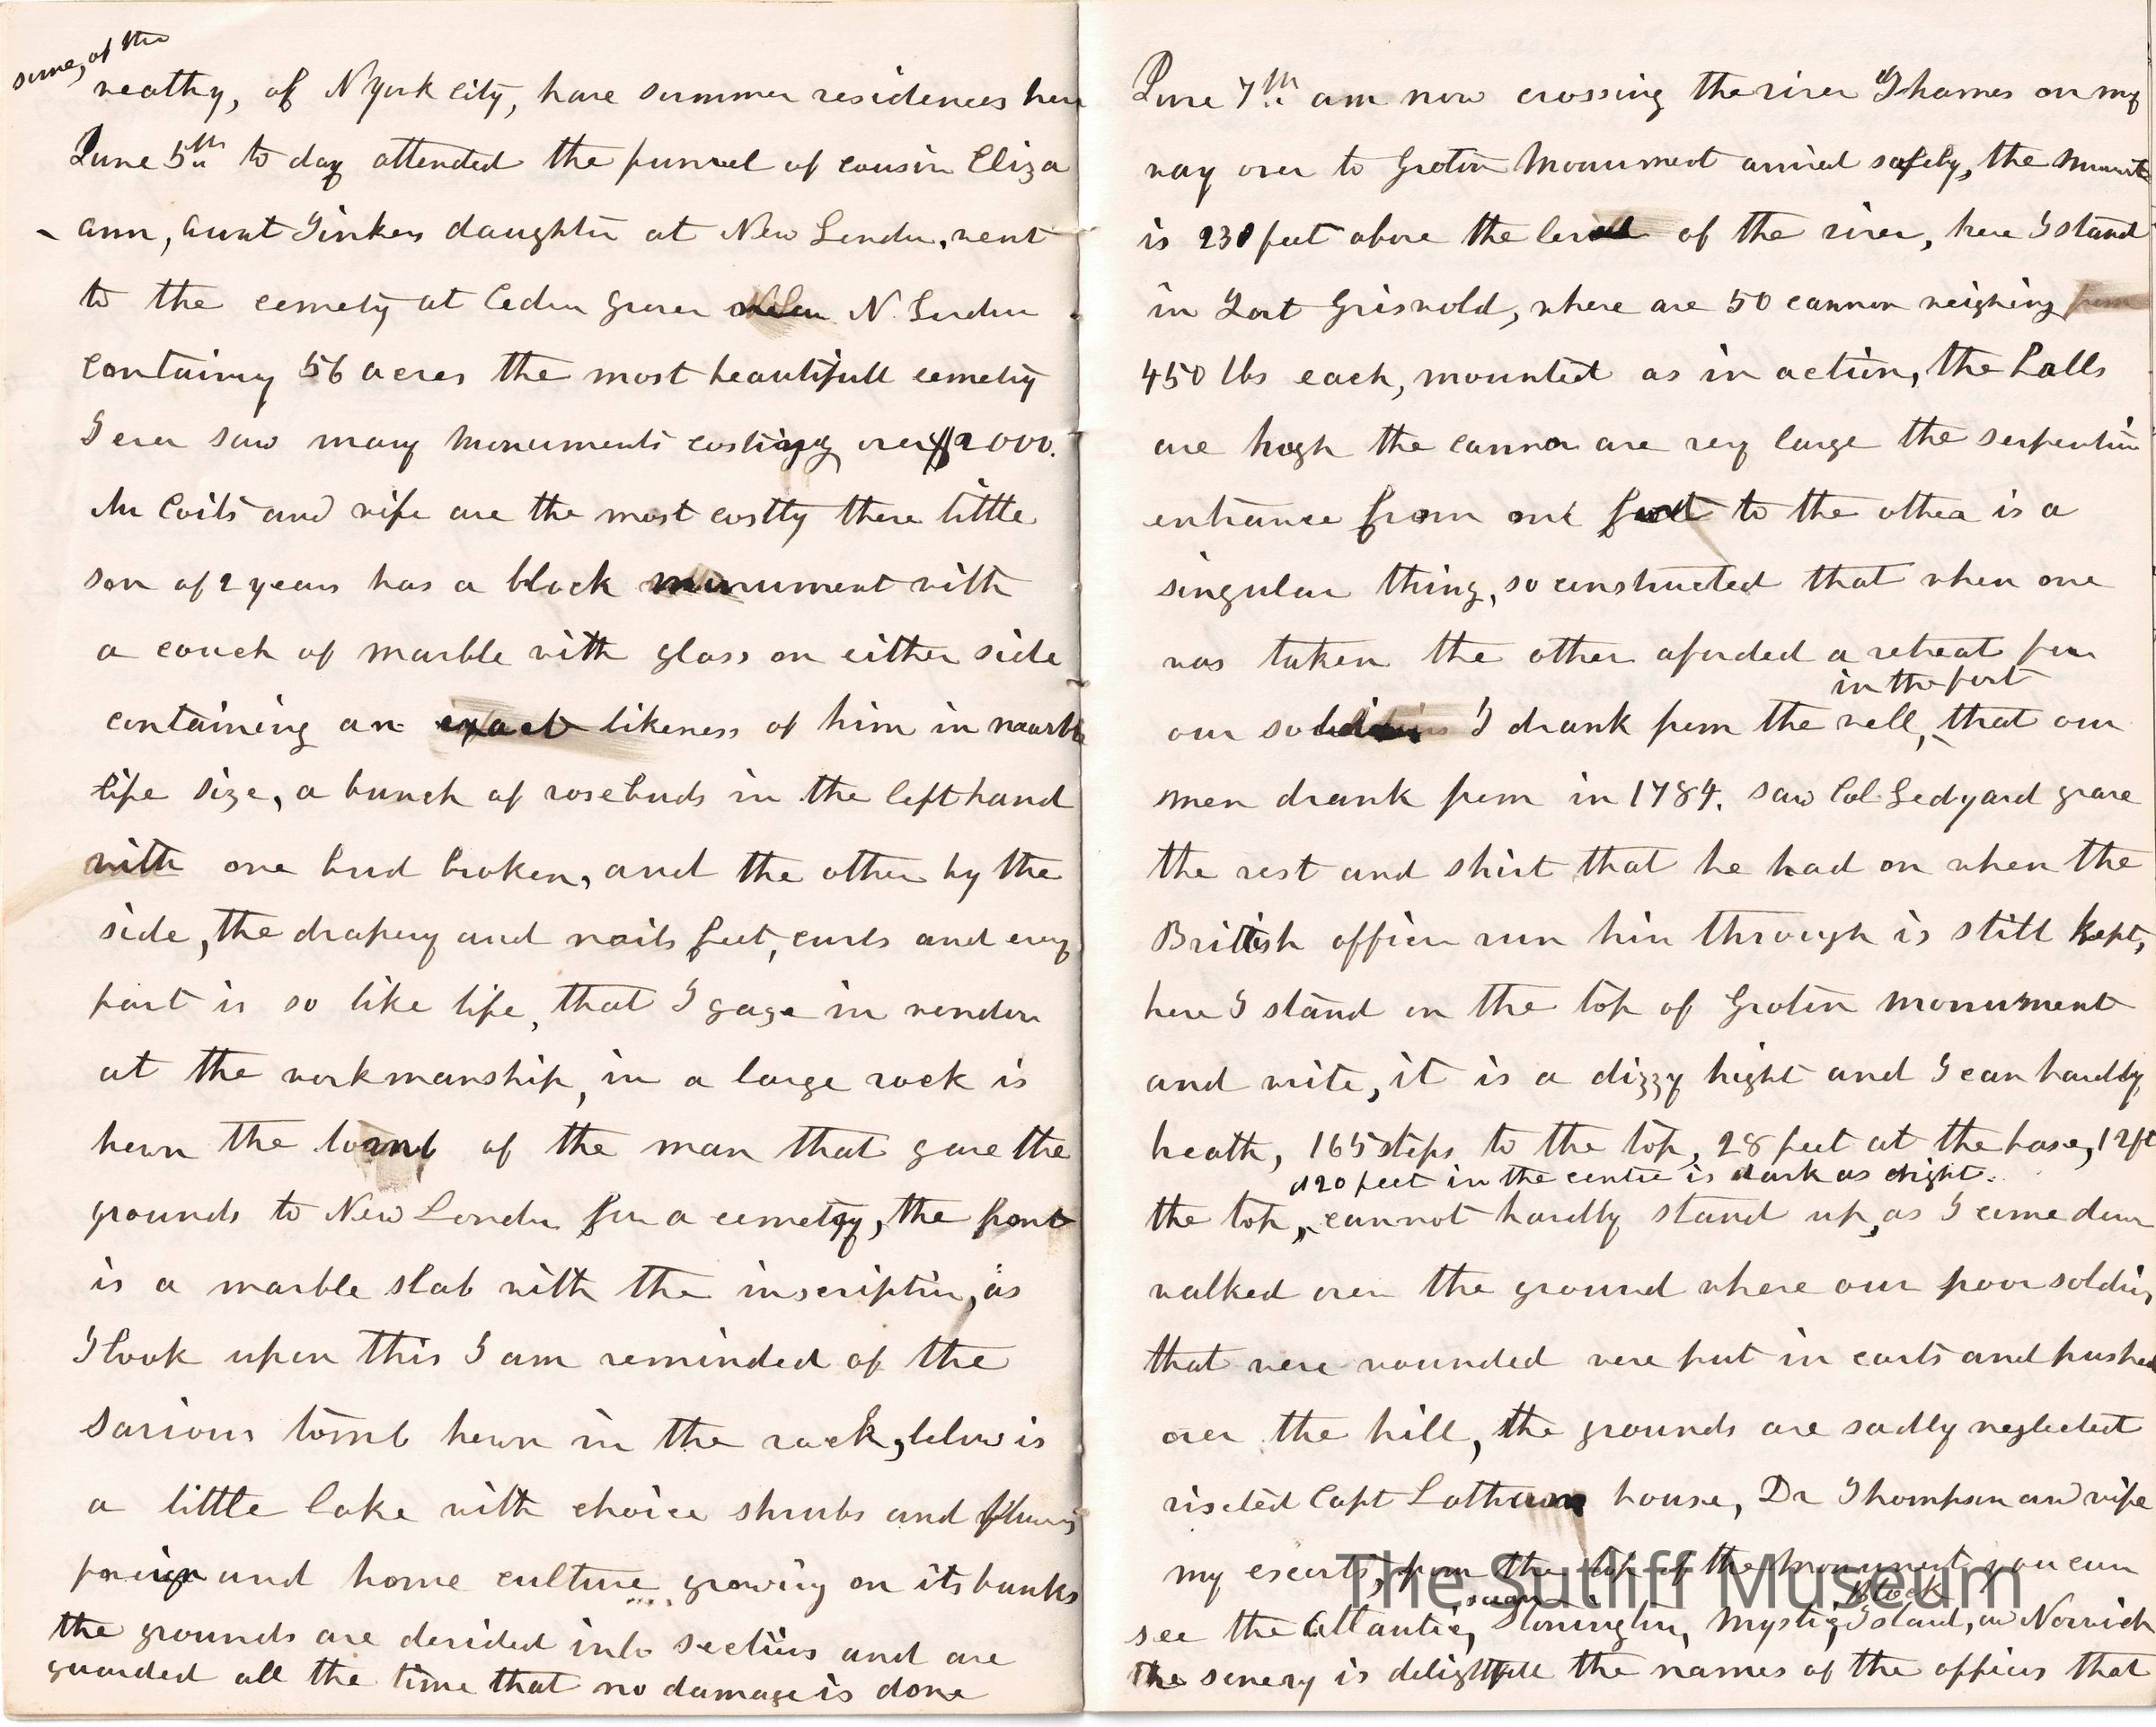 some, of the
weathy, of N York city, have summer residences here
June 5th to day attended the funrel of cousin Eliza
ann, aunt Tinkers daughter at New London, went
to the cemety at Ceder grover N. London
containing 56 acres the most beautifull cemetry
I ever saw many monuments costing over $2000.
Mr Coits and wife are the most costly there little
son of 2 years has a block monument with
a couch of marble with glass on either side
containing an exact likeness of him in maarble
life size, a bunch of rosebuds in the left hand
with one bud broken, and the other by the
side, the drapery and nails feet, curls and every
part is so like life, that I gaze in wonder
at the workmanship, in a large rock is
hewn the tomb of the man that gave the
grounds to New London for a cemetry, the front
is a marble slab with the inscription, as
I look upon this I am reminded of the
Saviours tomb hewn in the rock, below is
a little lake with choice shrubs and flowers
foriegn and home culture growing on its banks
the grounds are devided into sections and are
guarded all the time that no damage is done
June 7th am now crossing the river Thames on my
way over to Groton Monument arrived safely, the
is 230 feet above the level of the river, here I stand
in Fort Griswold, where are 50 cannon weighing from
450 lbs each, mounted as in action, the balls
are hugh the cannon are very large the serpentine
entrance from one fort to the other is a
singular thing, so constructed that when one
was taken the other aforded a retreat for
in the fort
our soldiers I drank from the well, that our
men drank from in 1784. saw Col Ledyard grave
the vest and shirt that he had on when the
British officer run him through is still kept,
here I stand on the top of Groton monument
and write, it is a dizzy hight and I can hardly
breath, 165 steps to the top, 28 feet at the base, 12 ft
120 feet in the centre is dark as night.
the top, cannot hardly stand up, as I came down
walked over the ground where our poor soldiers
that were wounded were put in carts and pushed
over the hill, the grounds are sadly neglected
viseted Capt Lathams house, Dr Thompson and wife
my escorts, from the top of the monument you can
sugar Block
see the Atlantic, Stonington, Mystic, Island, and Norwich
the senery is delightfull the names of the officers that
The Sutliff Museum